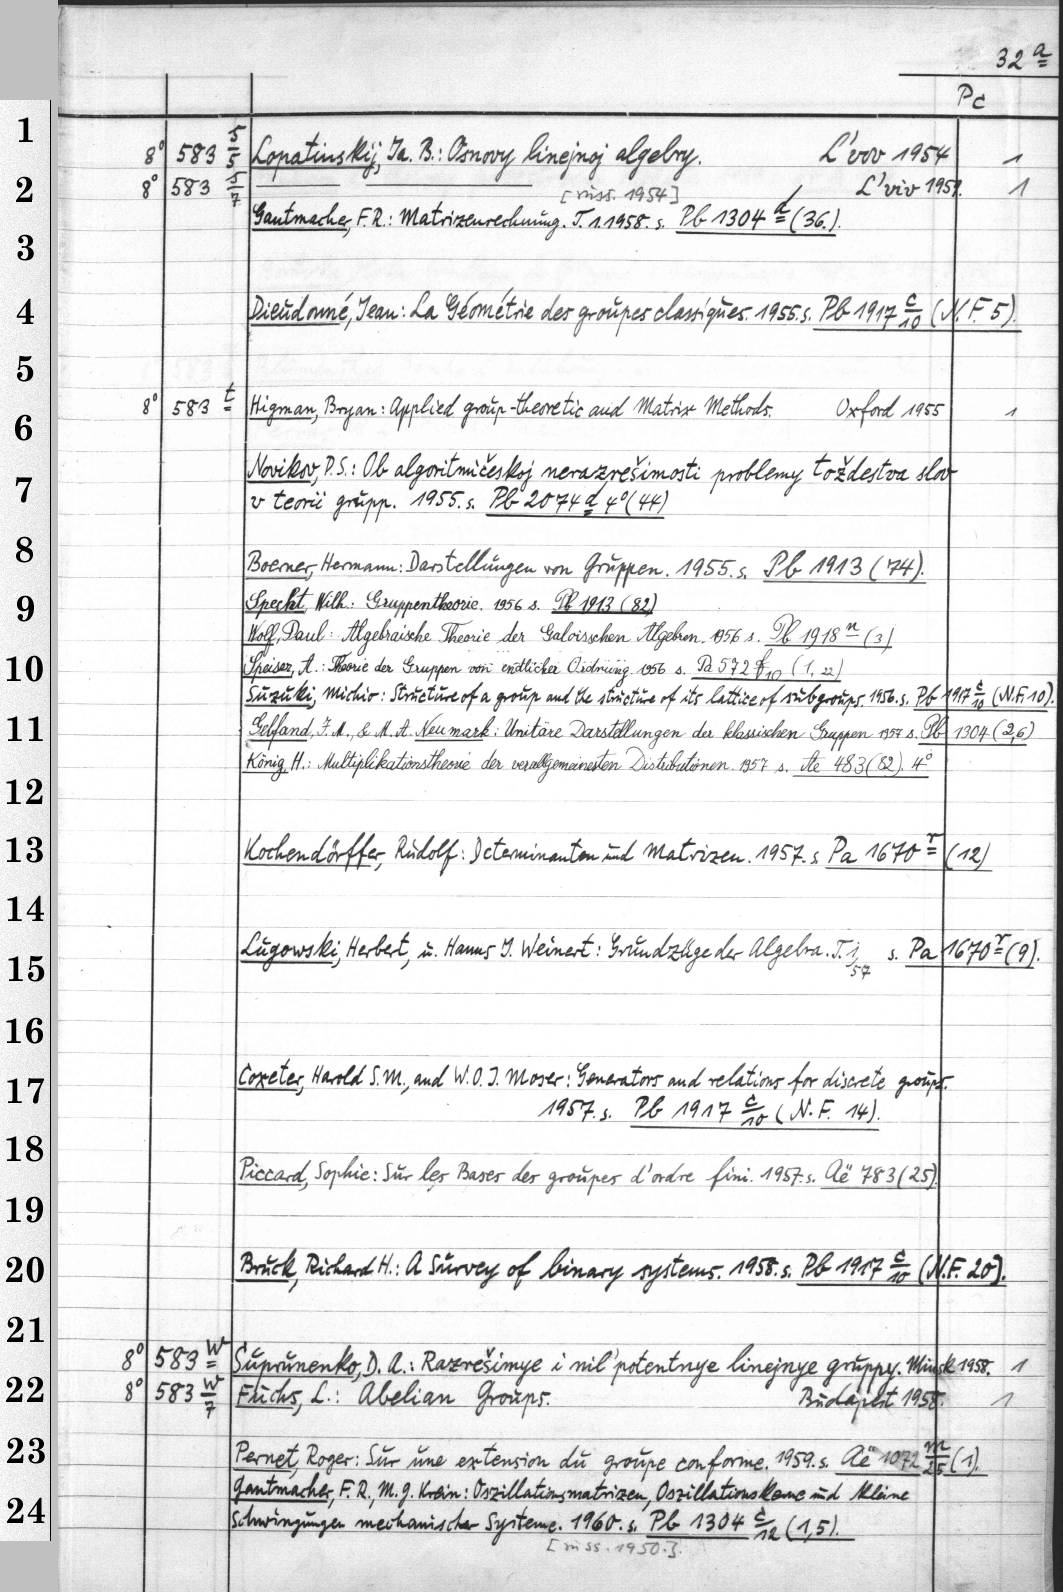 32 a
Pc
1
8° 583 5/5 Lopatinskij, Ja. B.: Osnovy linejnoj algebry. L'vov 1954 1
2
8° 583 5/7 ——— ——— L'viv 1959. 1
[russ. 1954]
Gantmacher, F. R.: Matrizenrechnung. T. 1. 1958. s. Pb 1304 d (36.).
3
4
Dieudonné, Jean: La Géométrie des groupes classiques. 1955. s. Pb 1917 c/10 (N. F. 5).
5
8° 583 t Higman, Bryan: Applied group-theoretic and Matrix Methods. Oxford 1955 1
6
Novikov, P.S.: Ob algoritmičeskoj nerazrešimosti problemy toždestva slov
7
v teorii grupp. 1955. s. Pb 2074 d 4° (44)
8
Boerner, Hermann: Darstellungen von Gruppen. 1955. s. Pb 1913 (74).
9
Specht, Wilh.: Gruppentheorie. 1956 s. Pb 1913 (82)
Wolf, Paul: Algebraische Theorie der Galoisschen Algebren. 1956 s. Pb 1918 n (3)
10
Speiser, A.: Theorie der Gruppen von endlicher Ordnung 1956 s. Pa 572 f/10 (1, 22)
Suzuki, Michio: Structure of a group and the structure of its lattice of subgroups. 1956. s. Pb 1917 c/10 (N.F. 10).
11
Gelfand, J. M., & M. A. Neumark: Unitäre Darstellungen der klassischen Gruppen 1957 s. Pb 1304 (2,6)
König, H.: Multiplikationstheorie der verallgemeinerten Distributionen. 1957 s. Ae 483 (82). 4°
12
13
Kochendörffer, Rudolf: Determinanten und Matrizen. 1957. s Pa 1670 r (12)
14
Lugowski, Herbert, u. Hanns J. Weinert: Grundzüge der Algebra. T. 1, 57 s. Pa 1670 r (9).
15
16
Coxeter, Harold S.M., and W. O. J. Moser: Generators and relations for discrete groups.
17
1957. s. Pb 1917 c/10 (N. F. 14).
18
Piccard, Sophie: Sur les Bases des groupes d'ordre fini. 1957. s. Aë 783 (25)
19
20
Bruck, Richard H.: A Survey of binary systems. 1958. s. Pb 1917 c/10 (N.F. 20).
21
8° 583 w Suprunenko, D. A.: Razrešimye i nil'potentnye linejnye gruppy. Minsk 1958. 1
22
8° 583 w/7 Fuchs, L.: Abelian Groups. Budapest 1958. 1
23
Pernet, Roger: Sur une extension du groupe conforme. 1959. s. Aë 1072 m/25 (1).
Gantmacher, F. R., M. G. Krein: Oszillationsmatrizen, Oszillationskerne und kleine
24
Schwingungen mechanischer Systeme. 1960. s. Pb 1304 c/12 (1,5).
[russ. 1950.].